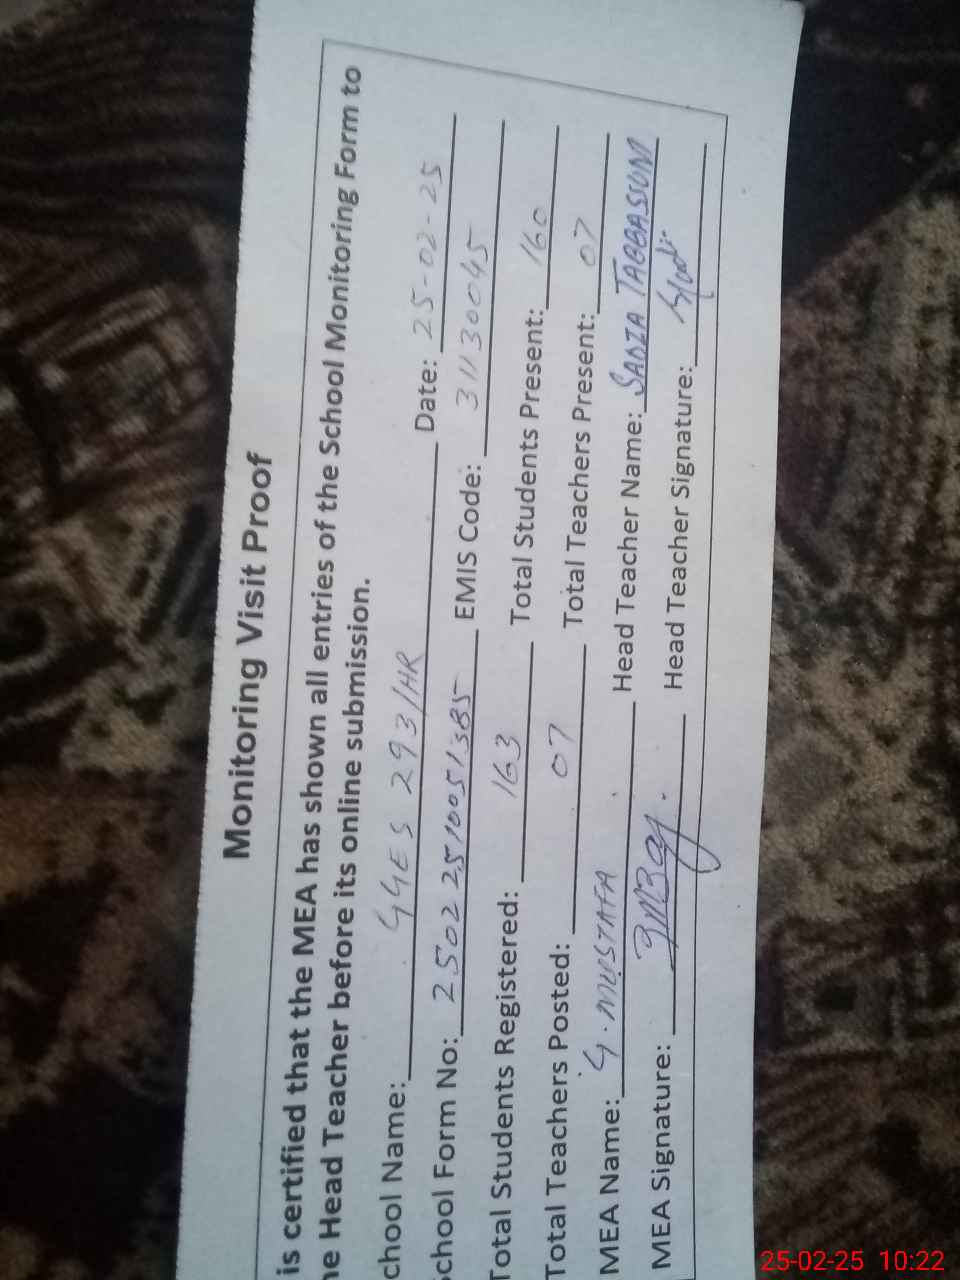 Monitoring Visit Proof
is certified that the MEA has shown all entries of the School Monitoring Form to
he Head Teacher before its online submission.
chool Name: GGES 293/HR Date: 25-02-25
chool Form No: 25022510051385 EMIS Code: 31130045
Total Students Registered: 163 Total Students Present: 160
Total Teachers Posted: 07 Total Teachers Present: 07
MEA Name: G. MUSTAFA Head Teacher Name: SADZA TABBASSUM
MEA Signature: Head Teacher Signature:
25-02-25 10:22